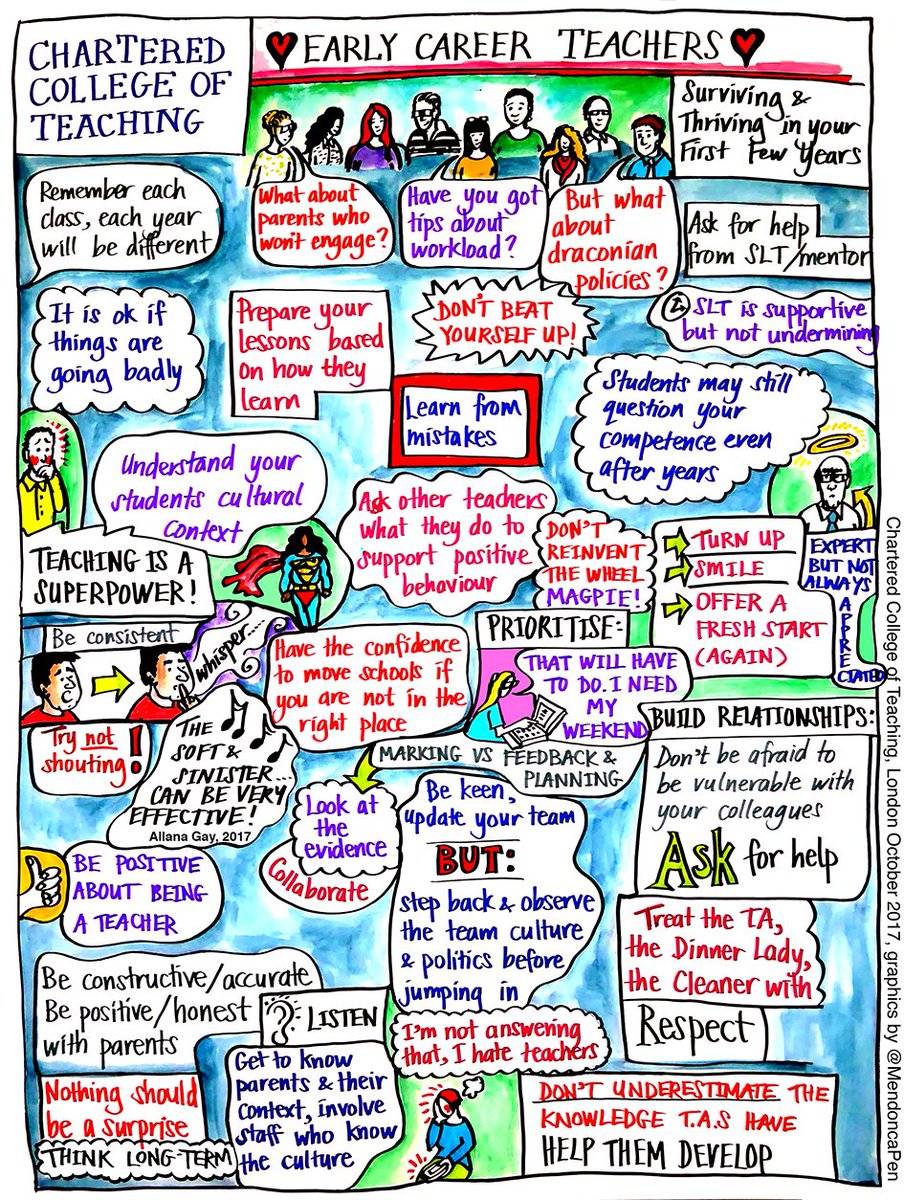 CHARTERED
COLLEGE OF
TEACHING
EARLY CAREER TEACHERS
Surviving &
Thriving in your
First Few Years
Remember each
class, each year
will be different
What about
parents who
won't engage?
Have you got
tips about
workload?
But what
about
draconian
policies?
Ask for help
from SLT/mentor
It is ok if
things are
going badly
Prepare your
lessons based
on how they
learn
DON'T BEAT
YOURSELF UP!
SLT is supportive
but not undermining
Learn from
mistakes
Students may still
question your
competence even
after years
Understand your
students cultural
context
Ask other teachers
what they do to
support positive
behaviour
DON'T
REINVENT
THE WHEEL
MAGPIE!
TURN UP
SMILE
OFFER A
FRESH START
(AGAIN)
EXPERT
BUT NOT
ALWAYS
APPRECIATED
TEACHING IS A
SUPERPOWER!
Be consistent
whisper...
Try not
shouting!
THE
SOFT &
SINISTER...
CAN BE VERY
EFFECTIVE!
Allana Gay, 2017
Have the confidence
to move schools if
you are not in the
right place
PRIORITISE:
THAT WILL HAVE
TO DO. I NEED
MY
WEEKEND
MARKING VS FEEDBACK &
PLANNING
Look at
the
evidence
Collaborate
BUILD RELATIONSHIPS:
Don't be afraid to
be vulnerable with
your colleagues
ASK for help
BE POSITIVE
ABOUT BEING
A TEACHER
Be keen,
update your team
BUT:
step back & observe
the team culture
& politics before
jumping in
Treat the TA,
the Dinner Lady,
the Cleaner with
Respect
Be constructive/accurate
Be positive/honest
with parents
LISTEN
I'm not answering
that, I hate teachers
Nothing should
be a surprise
THINK LONG-TERM
Get to know
parents & their
context, involve
staff who know
the culture
DON'T UNDERESTIMATE THE
KNOWLEDGE T.A.S HAVE
HELP THEM DEVELOP
Chartered College of Teaching, London October 2017, graphics by @MendoncaPen